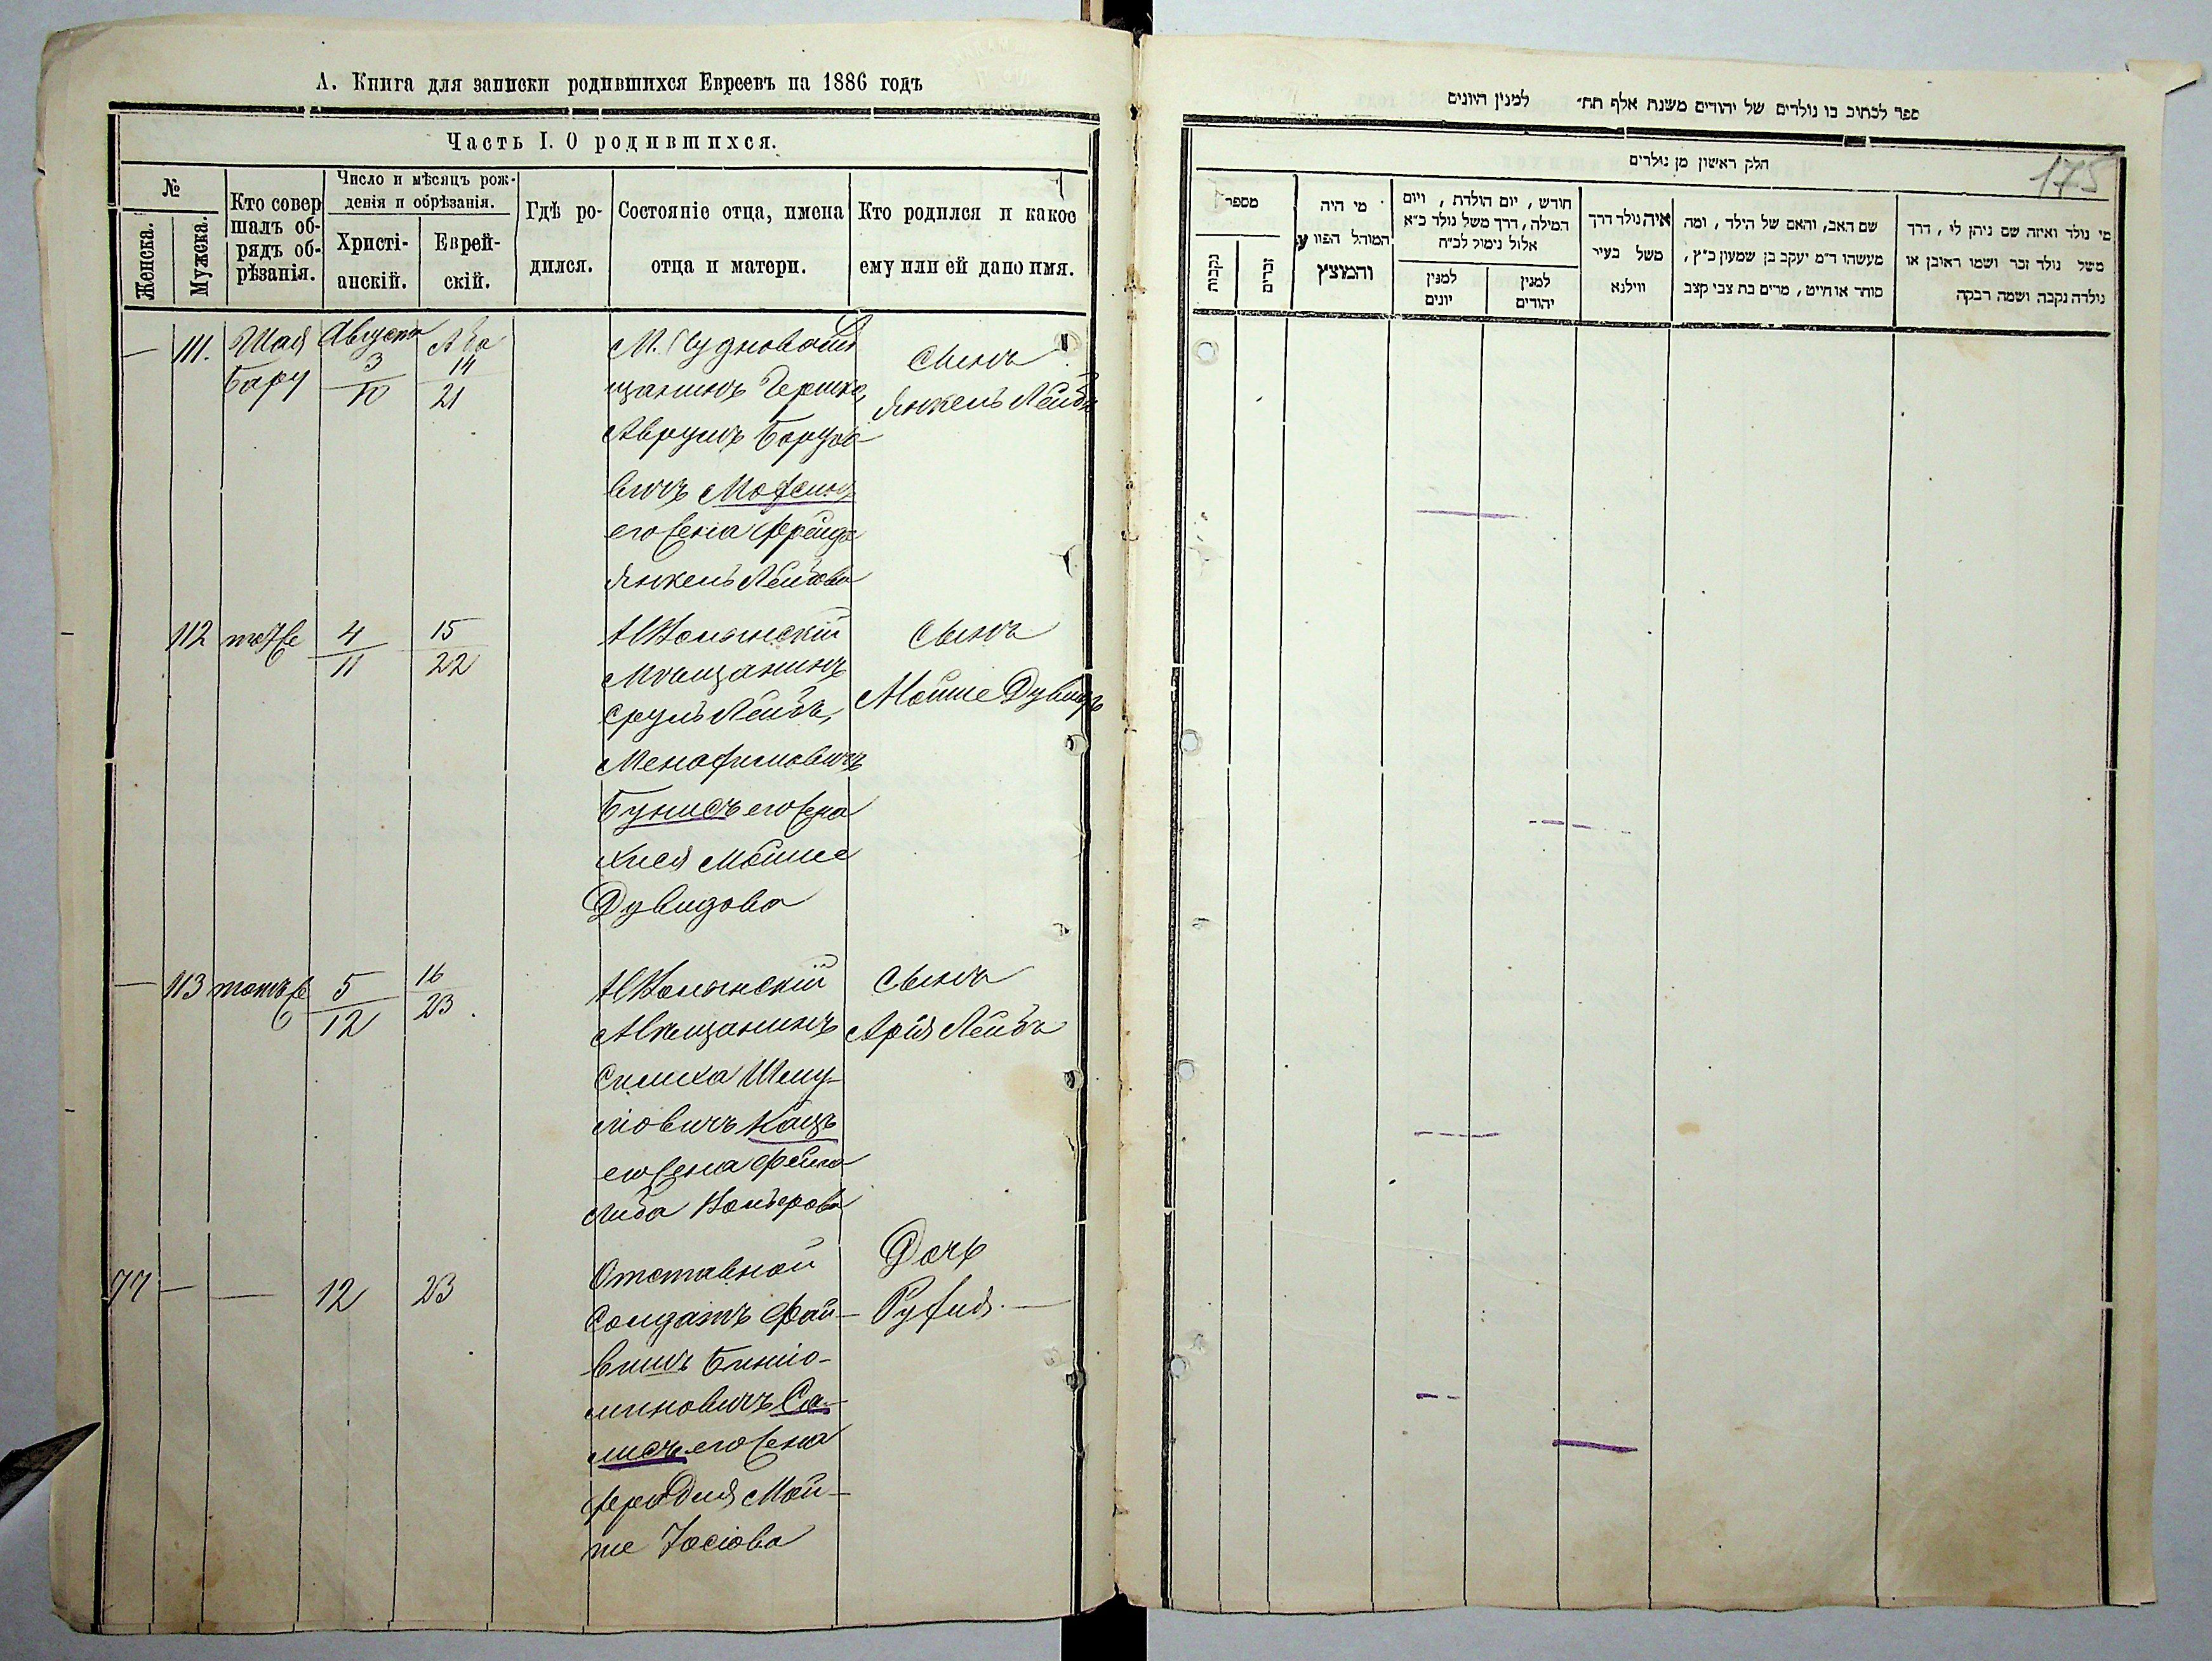 А. Книга для записки родившихся Евреевъ на 1886 годъ
Часть I. О родившихся.
№
Женска.
Мужска.
Кто совер
шалъ об-
рядъ об-
рѣзанія.
Число и мѣсяцъ рож-
денія и обрѣзанія.
Христі-
анскій.
Еврей-
скій.
Гдѣ ро-
дился.
Состояніе отца, имена
отца и матери.
Кто родился и какое
ему или ей дано имя.
—
111.
Шая
Бару
Августа
3
10
Ава
14
21
щанинъ Гершко
Аврумъ Борухо
вичъ
его жена Фрейда
Янкель Лейбова
Сынъ
Янкель Лейбъ
112
тотже
4
11
15
22
Мѣщанинъ
Сруль Лейбъ,
Менахимовичъ
Бунисъ его жена
Хися Мойше
Дувидова
Сынъ
Мойше Дувидъ
—
113
тотъ же
5
12
16
23
Мѣщанинъ
Симха Шму-
ліовичъ Кацъ
его жена Фейга
Либа
Сынъ
Арія Лейбъ
77
—
—
12
23
Отставной
Солдатъ Фай-
вишъ Биніо-
миновичъ Са-
лисъ его жена
Мой-
ше Іосіова
Дочь
Рухля. —
ספר לכתוב בו נולדים של יהודים משנת אלף תת״ למנין היונים
חלק ראשון מן נולדים
175
מספר
נקבות
זכרים
מי היה
המוהל הפווע
והמוצץ
חודש, יום הולדת, ויום
המילה, דרך משל נולד כ״א
אלול נימול לכ״ח
למנין
יונים
למנין
יהודים
איה נולד דרך
משל בעיר
ווילנא
שם האב, והאם של הילד, ומה
מעשהו ד״מ יעקב בן שמעון כ״ץ,
סוחר או חייט, מרים בת צבי קצב
מי נולד ואיזה שם ניתן לו, דרך
משל נולד זכר ושמו ראובן או
נולדה נקבה ושמה רבקה